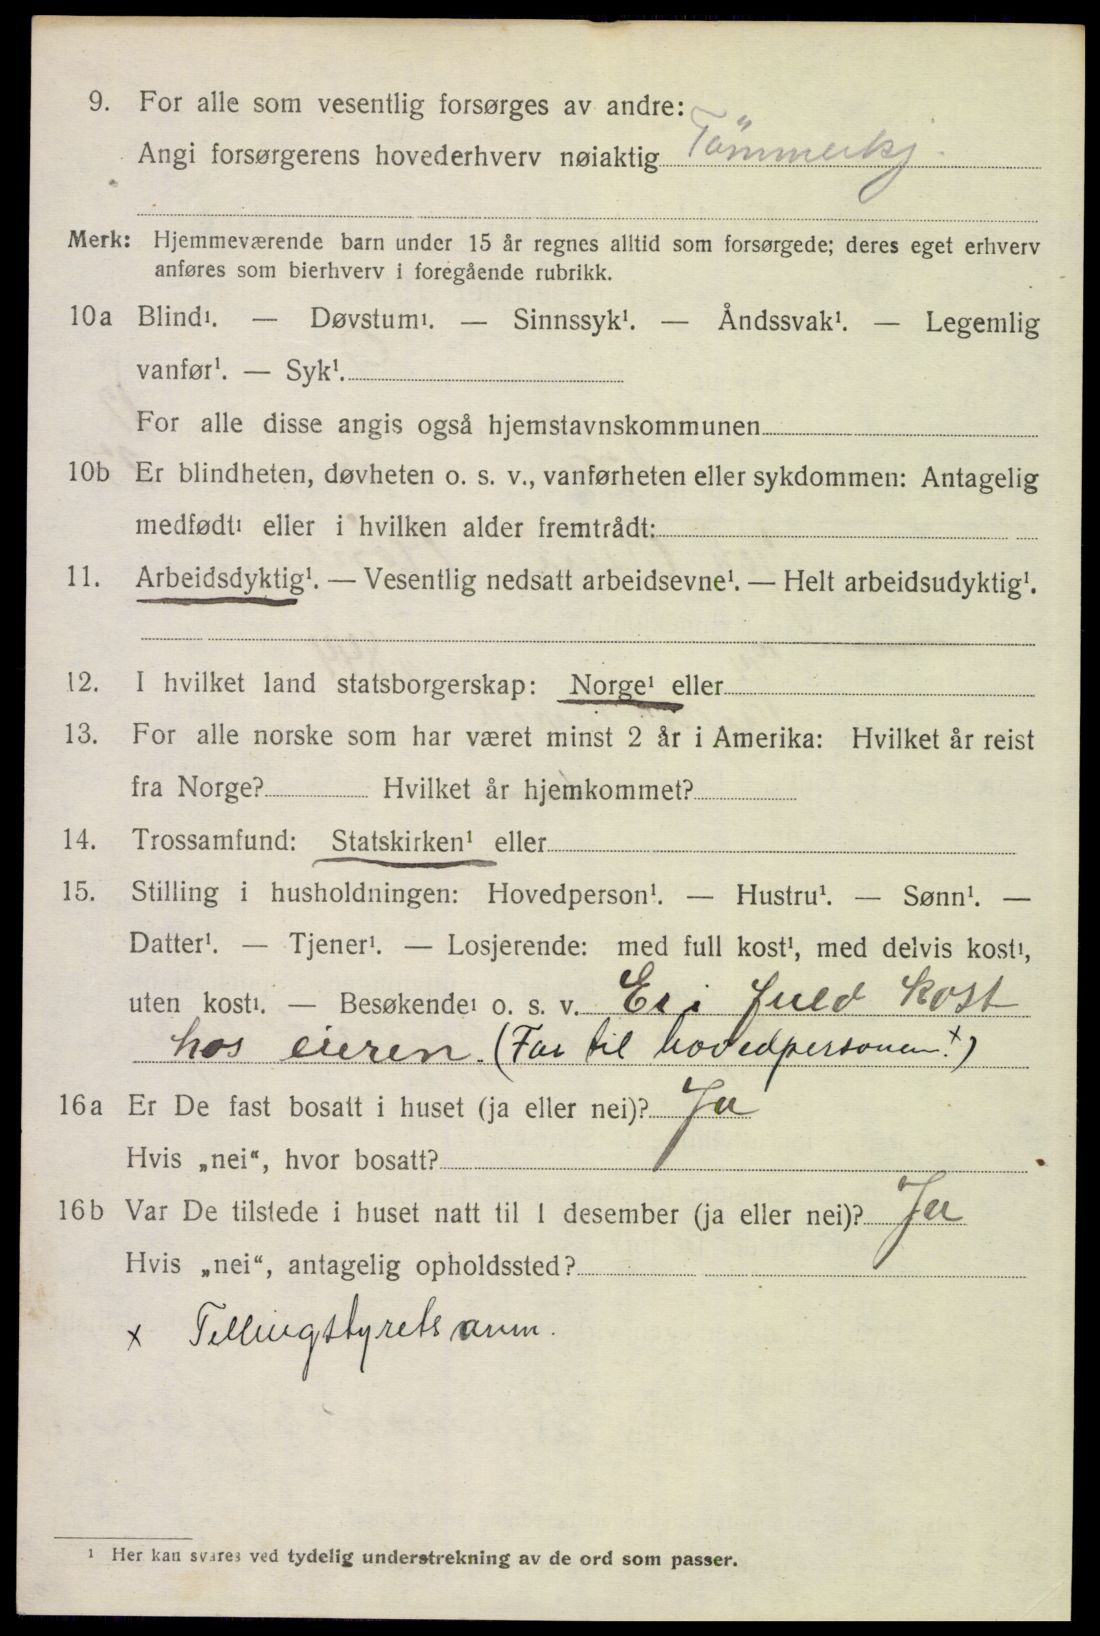 9. For alle som vesentlig forsørges av andre:
Angi forsørgerens hovederhverv nøiaktig Tömmerkj.
Merk: Hjemmeværende barn under 15 år regnes alltid som forsørgede; deres eget erhverv
anføres som bierhverv i foregående rubrikk.
10a Blind¹. — Døvstum¹. — Sinnssyk¹. — Åndssvak¹. — Legemlig
vanfør¹. — Syk¹.
For alle disse angis også hjemstavnskommunen
10b Er blindheten, døvheten o. s. v., vanførheten eller sykdommen: Antagelig
medfødt¹ eller i hvilken alder fremtrådt:
11. Arbeidsdyktig¹. — Vesentlig nedsatt arbeidsevne¹. — Helt arbeidsudyktig¹.
12. I hvilket land statsborgerskap: Norge¹ eller
13. For alle norske som har været minst 2 år i Amerika: Hvilket år reist
fra Norge? Hvilket år hjemkommet?
14. Trossamfund: Statskirken¹ eller
15. Stilling i husholdningen: Hovedperson¹. — Hustru¹. — Sønn¹. —
Datter¹. — Tjener¹. — Losjerende: med full kost¹, med delvis kost¹,
uten kost¹. — Besøkende¹ o. s. v. Er i fuld kost
hos eieren. (Far til hovedpersonen.x)
16a Er De fast bosatt i huset (ja eller nei)? Ja
Hvis „nei“, hvor bosatt?
16b Var De tilstede i huset natt til 1 desember (ja eller nei)? Ja
Hvis „nei“, antagelig opholdssted?
x Tellingstyrets anm.
¹ Her kan svares ved tydelig understrekning av de ord som passer.